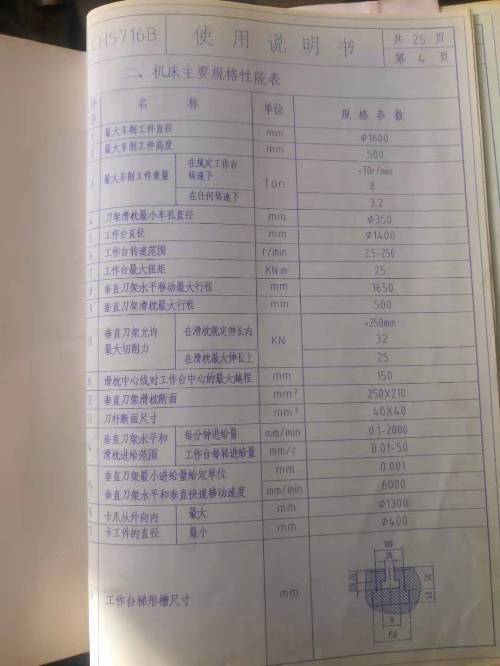 CH5716B 使用说明书 共 25 页
第 4 页
二、机床主要规格性能表
序号 名称 单位 规格参数
1 最大车削工件直径 mm Φ1600
2 最大车削工件高度 mm 500
3 最大车削工件重量 在规定工作台转速下 ton <70r/min 8
在任何转速下 3.2
4 刀架滑枕最小车孔直径 mm Φ350
5 工作台直径 mm Φ1400
6 工作台转速范围 r/min 2.5-250
7 工作台最大扭矩 KN.m 25
8 垂直刀架水平移动最大行程 mm 1650
9 垂直刀架滑枕最大行程 mm 500
10 垂直刀架允许最大切削力 在滑枕规定伸长内 KN <250mm 32
在滑枕最大伸长上 25
11 滑枕中心线对工作台中心的最大越程 mm 150
12 垂直刀架滑枕断面 mm² 250X210
13 刀杆断面尺寸 mm² 40X40
14 垂直刀架水平和滑枕进给范围 每分钟进给量 mm/min 0.1-2000
工作台每转进给量 mm/r 0.01-50
15 垂直刀架最小进给量给定单位 mm 0.001
垂直刀架水平和垂直快速移动速度 mm/min 6000
16 卡爪从外向内 最大 mm Φ1300
17 卡工件的直径 最小 mm Φ400
18 工作台梯形槽尺寸 mm
150